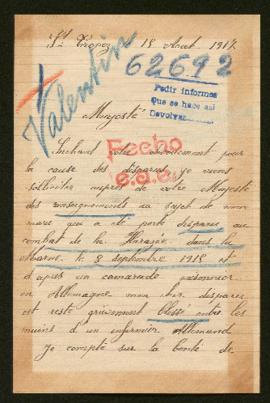 St Tropez 18 Aout 1917
62692
Valentin
Pedir informes
Que se hace así
Devolver
Majesté
Fecho
Sachant votre dévouement pour
la cause des disparus je viens
solliciter auprès de votre Majesté
des renseignements au sujet de mon
mari qui a été porté disparus au
combat de la dans la
Marne le 8 septembre 1915 et
d'après un camarade prisonnier
en Allemagne mon cher disparus
est resté grièvement blessé entre les
mains d'un infirmier Allemand
Je compte sur la bonté de